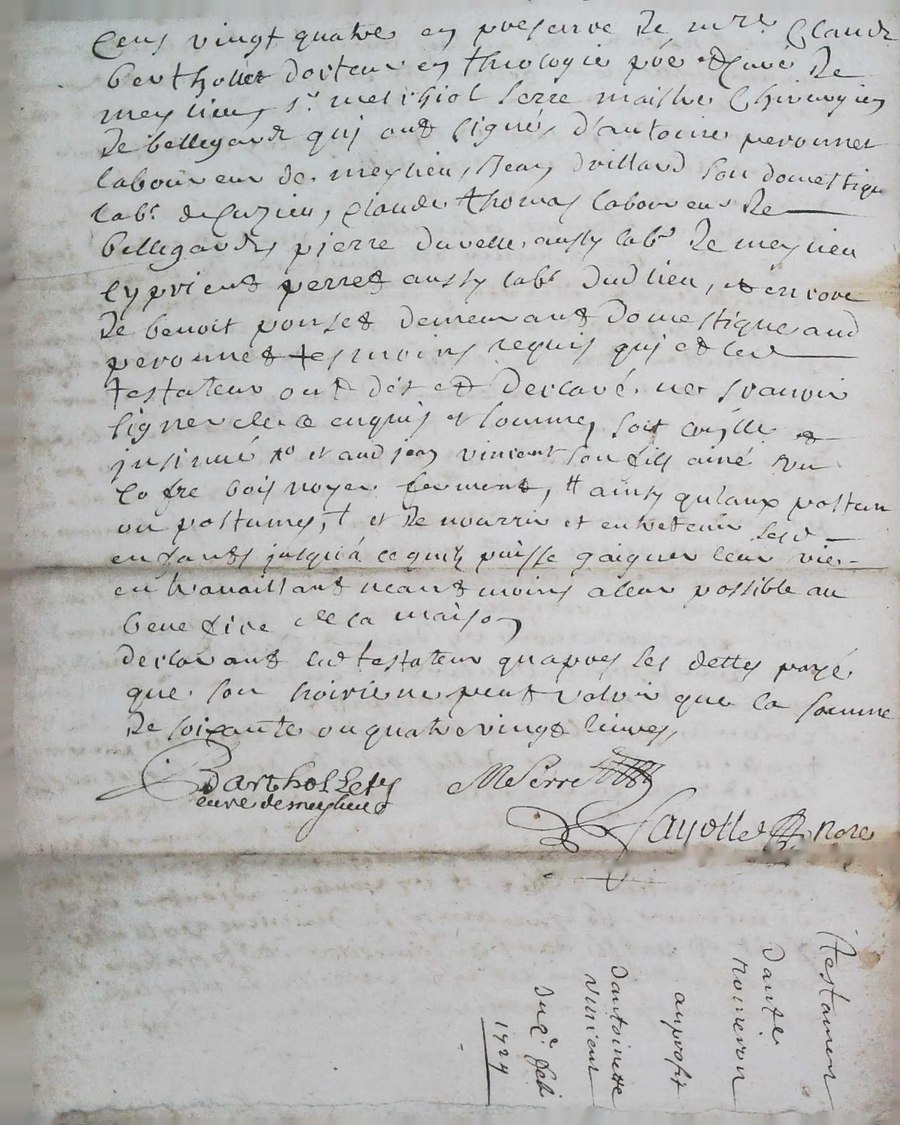 cens vingt quatre en presence de mre Claude
berthollet docteur en theologie pbre et curé de
meylieu, sr melchiol serre maistre chirurgien
de bellegarde qui ont signés d'antoine peronnet
laboureur de meylieu, Jean drillard son domestique
labr de cuzieu, claude thomas laboureur de
bellegarde, pierre duvelle aussy labr de meylieu
cyprient perret aussy labr dud lieu, et encore
de benoit ponset demeurant domestique aud
peronnet tesmoins requis qui et led
testateur ont dit et declaré ne scavoir
signer de ce enquis et sommés soit
insinué et aud jean vincent son fils ainé un
cofre bois noyer fermant, # ainsy qu'aux postun
ou postumes, + et de nourrir et entretenir lesd
enfants jusqu'a ce quils puisse gaigner leur vie
en travaillant neantmoins a leur possible au
benefice de la maison
declarant led testateur quapres les dettes payé
que son hoirie ne peut valoir que la somme
de soixante ou quatre vingt livres,
Barthollety MSerre
curé de meylieu
Fayolle Nore
Testament
dant
au profit
dantoinette
vincent
du 2e feb
1724